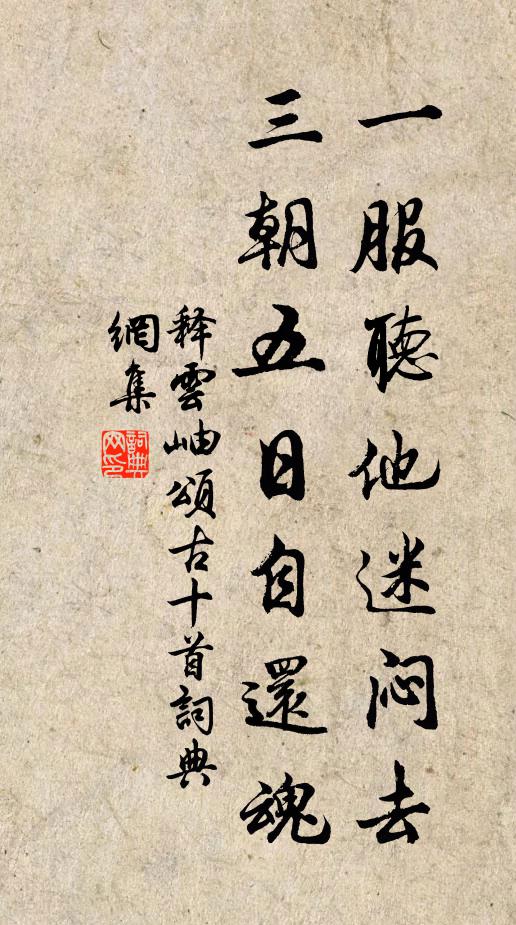 一服聽他迷闷去
三朝五日自還魂
释雲岫頌古十首詞典
網集
詞典网印